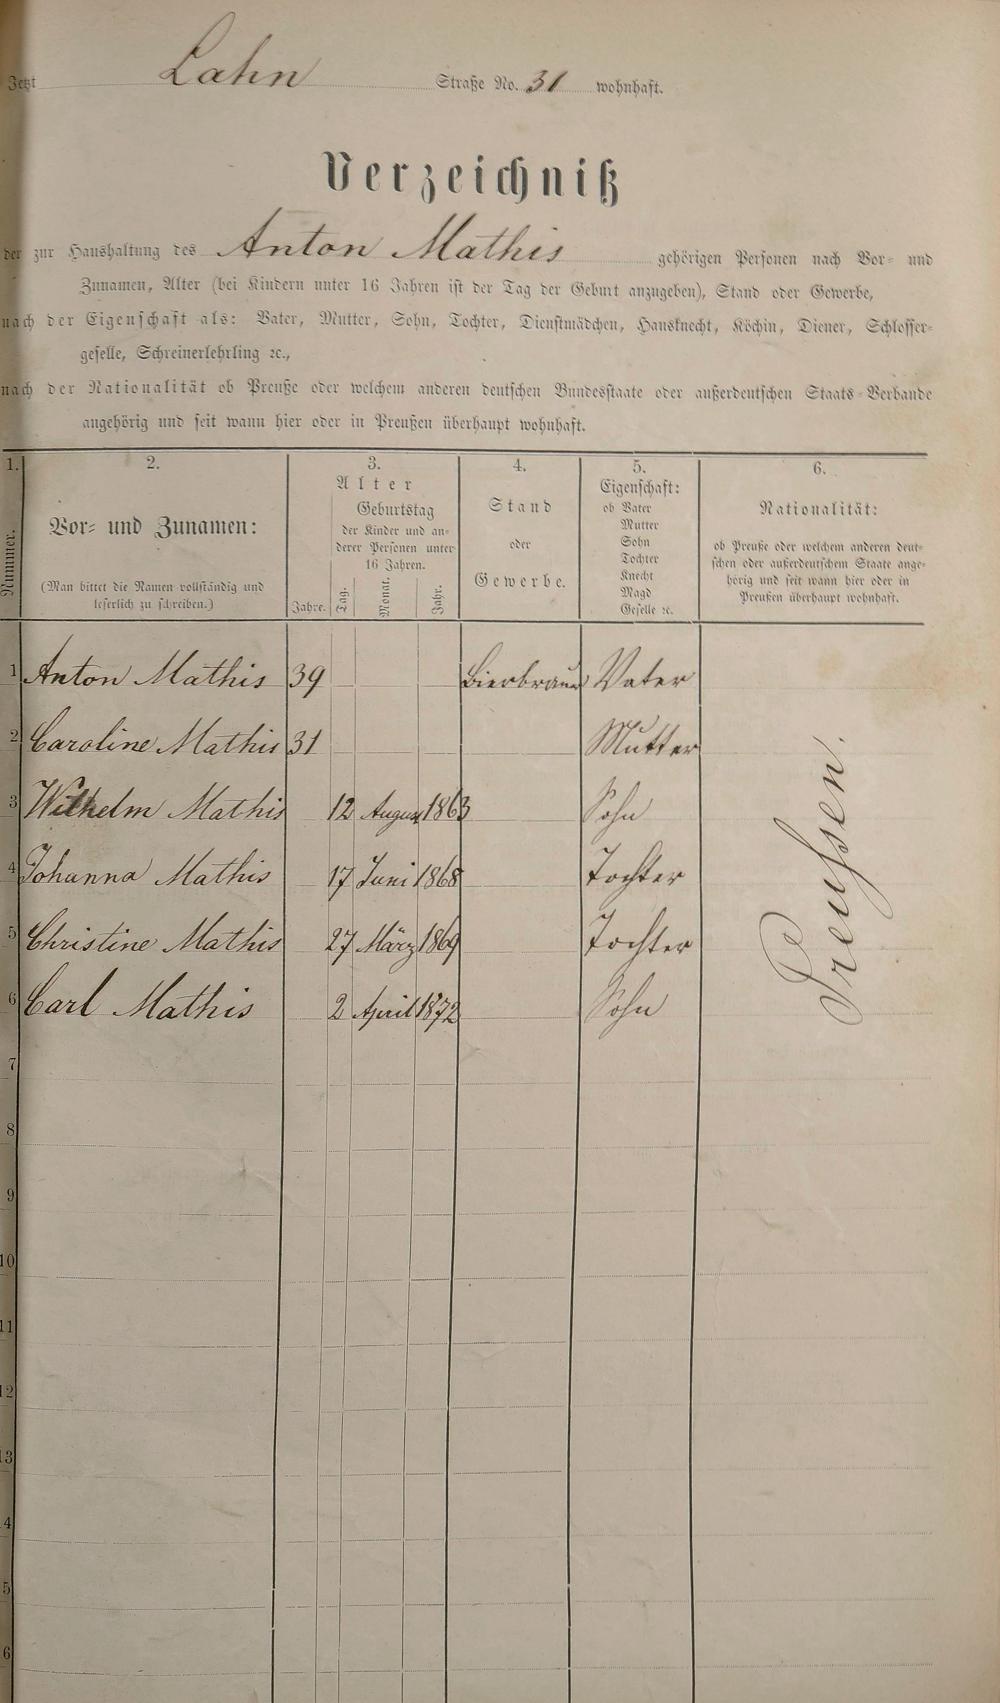 Jetzt Lahn Straße No. 31 wohnhaft.
Verzeichniß
der zur Haushaltung des Anton Mathis gehörigen Personen nach Vor- und
Zunamen, Alter (bei Kindern unter 16 Jahren ist der Tag der Geburt anzugeben), Stand oder Gewerbe,
nach der Eigenschaft als: Vater, Mutter, Sohn, Tochter, Dienstmädchen, Hausknecht, Köchin, Diener, Schlosser-
geselle, Schreinerlehrling ꝛc.,
nach der Nationalität ob Preuße oder welchem anderen deutschen Bundesstaate oder außerdeutschen Staats-Verbande
angehörig und seit wann hier oder in Preußen überhaupt wohnhaft.
1. 2. 3. 4. 5. 6.
Nummer.
Vor- und Zunamen:
(Man bittet die Namen vollständig und
leserlich zu schreiben.)
Alter
Geburtstag
der Kinder und an-
derer Personen unter
16 Jahren.
Jahre. Tag. Monat. Jahr.
Stand
oder
Gewerbe.
Eigenschaft:
ob Vater
Mutter
Sohn
Tochter
Knecht
Magd
Geselle ꝛc.
Nationalität:
ob Preuße oder welchem anderen deut-
schen oder außerdeutschem Staate ange-
hörig und seit wann hier oder in
Preußen überhaupt wohnhaft.
1 Anton Mathis 39 Bierbrauer Vater
2 Caroline Mathis 31 Mutter
3 Wilhelm Mathis 12 August 1863 Sohn
4 Johanna Mathis 17 Juni 1868 Tochter
5 Christine Mathis 27 März 1869 Tochter
6 Carl Mathis 2 April 1872 Sohn
Preußen.
7
8
9
10
11
12
13
4
5
6